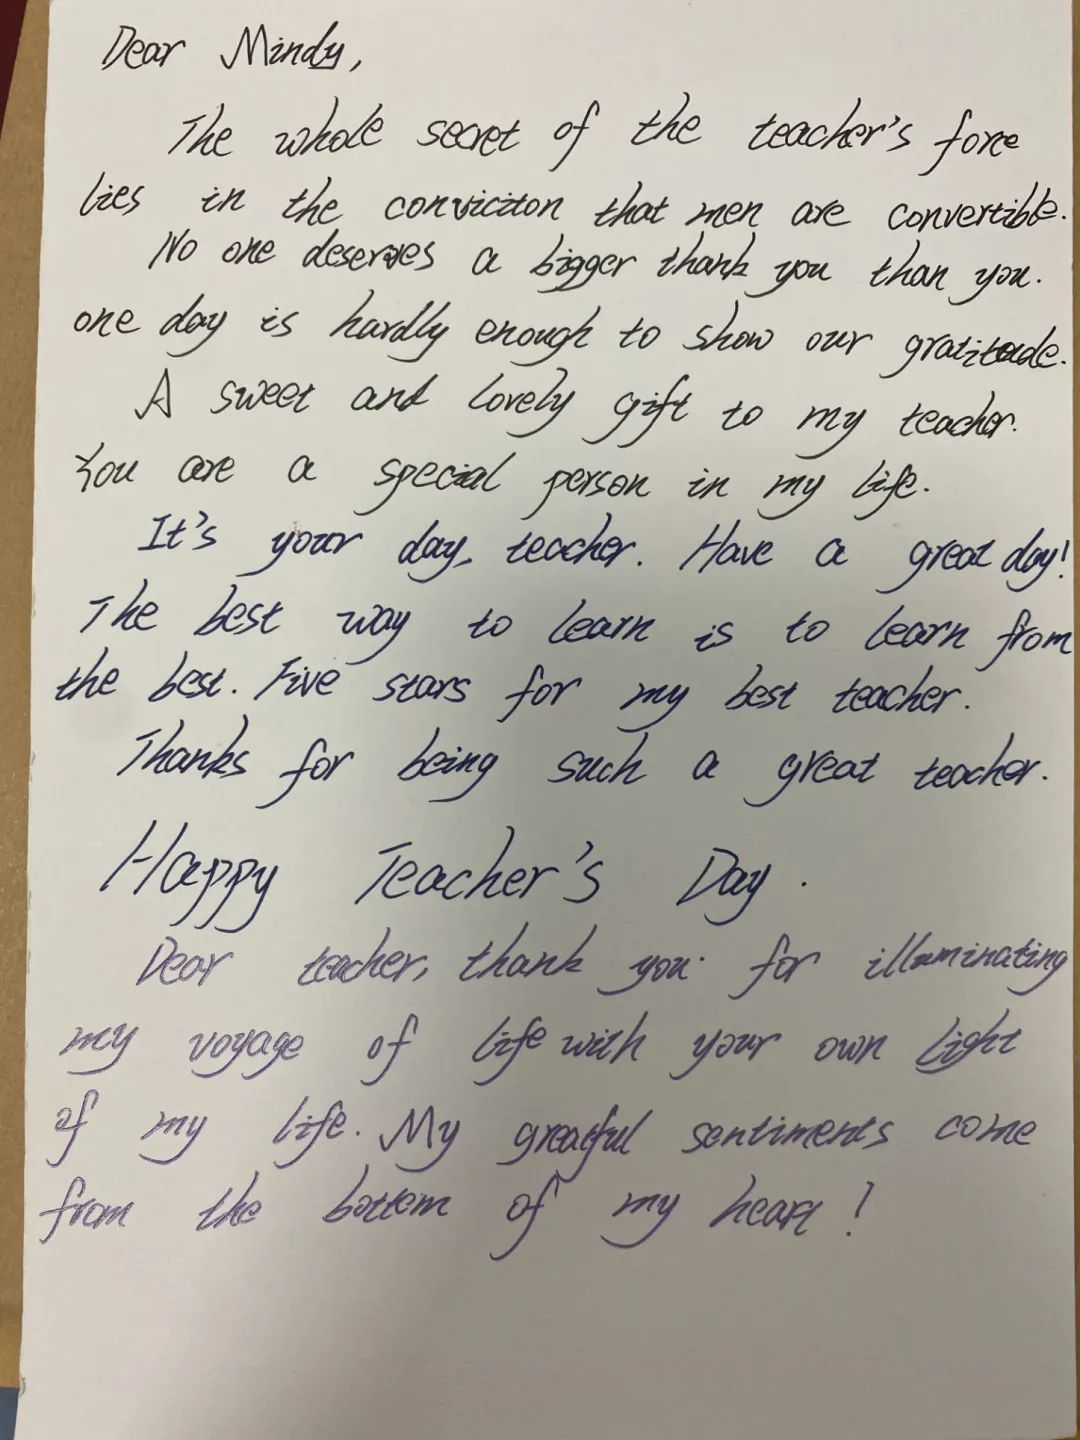 Dear Mindy,
The whole secret of the teacher's force
lies in the conviciton that men are convertible.
No one deserves a bigger thank you than you.
one day is hardly enough to show our gratitude.
A sweet and lovely gift to my teacher.
You are a special person in my life.
It's your day, teacher. Have a great day!
The best way to learn is to learn from
the best. Five stars for my best teacher.
Thanks for being such a great teacher.
Happy Teacher's Day.
Dear teacher, thank you for illuminating
my voyage of life with your own light
of my life. My greatful sentiments come
from the bottem of my heart!